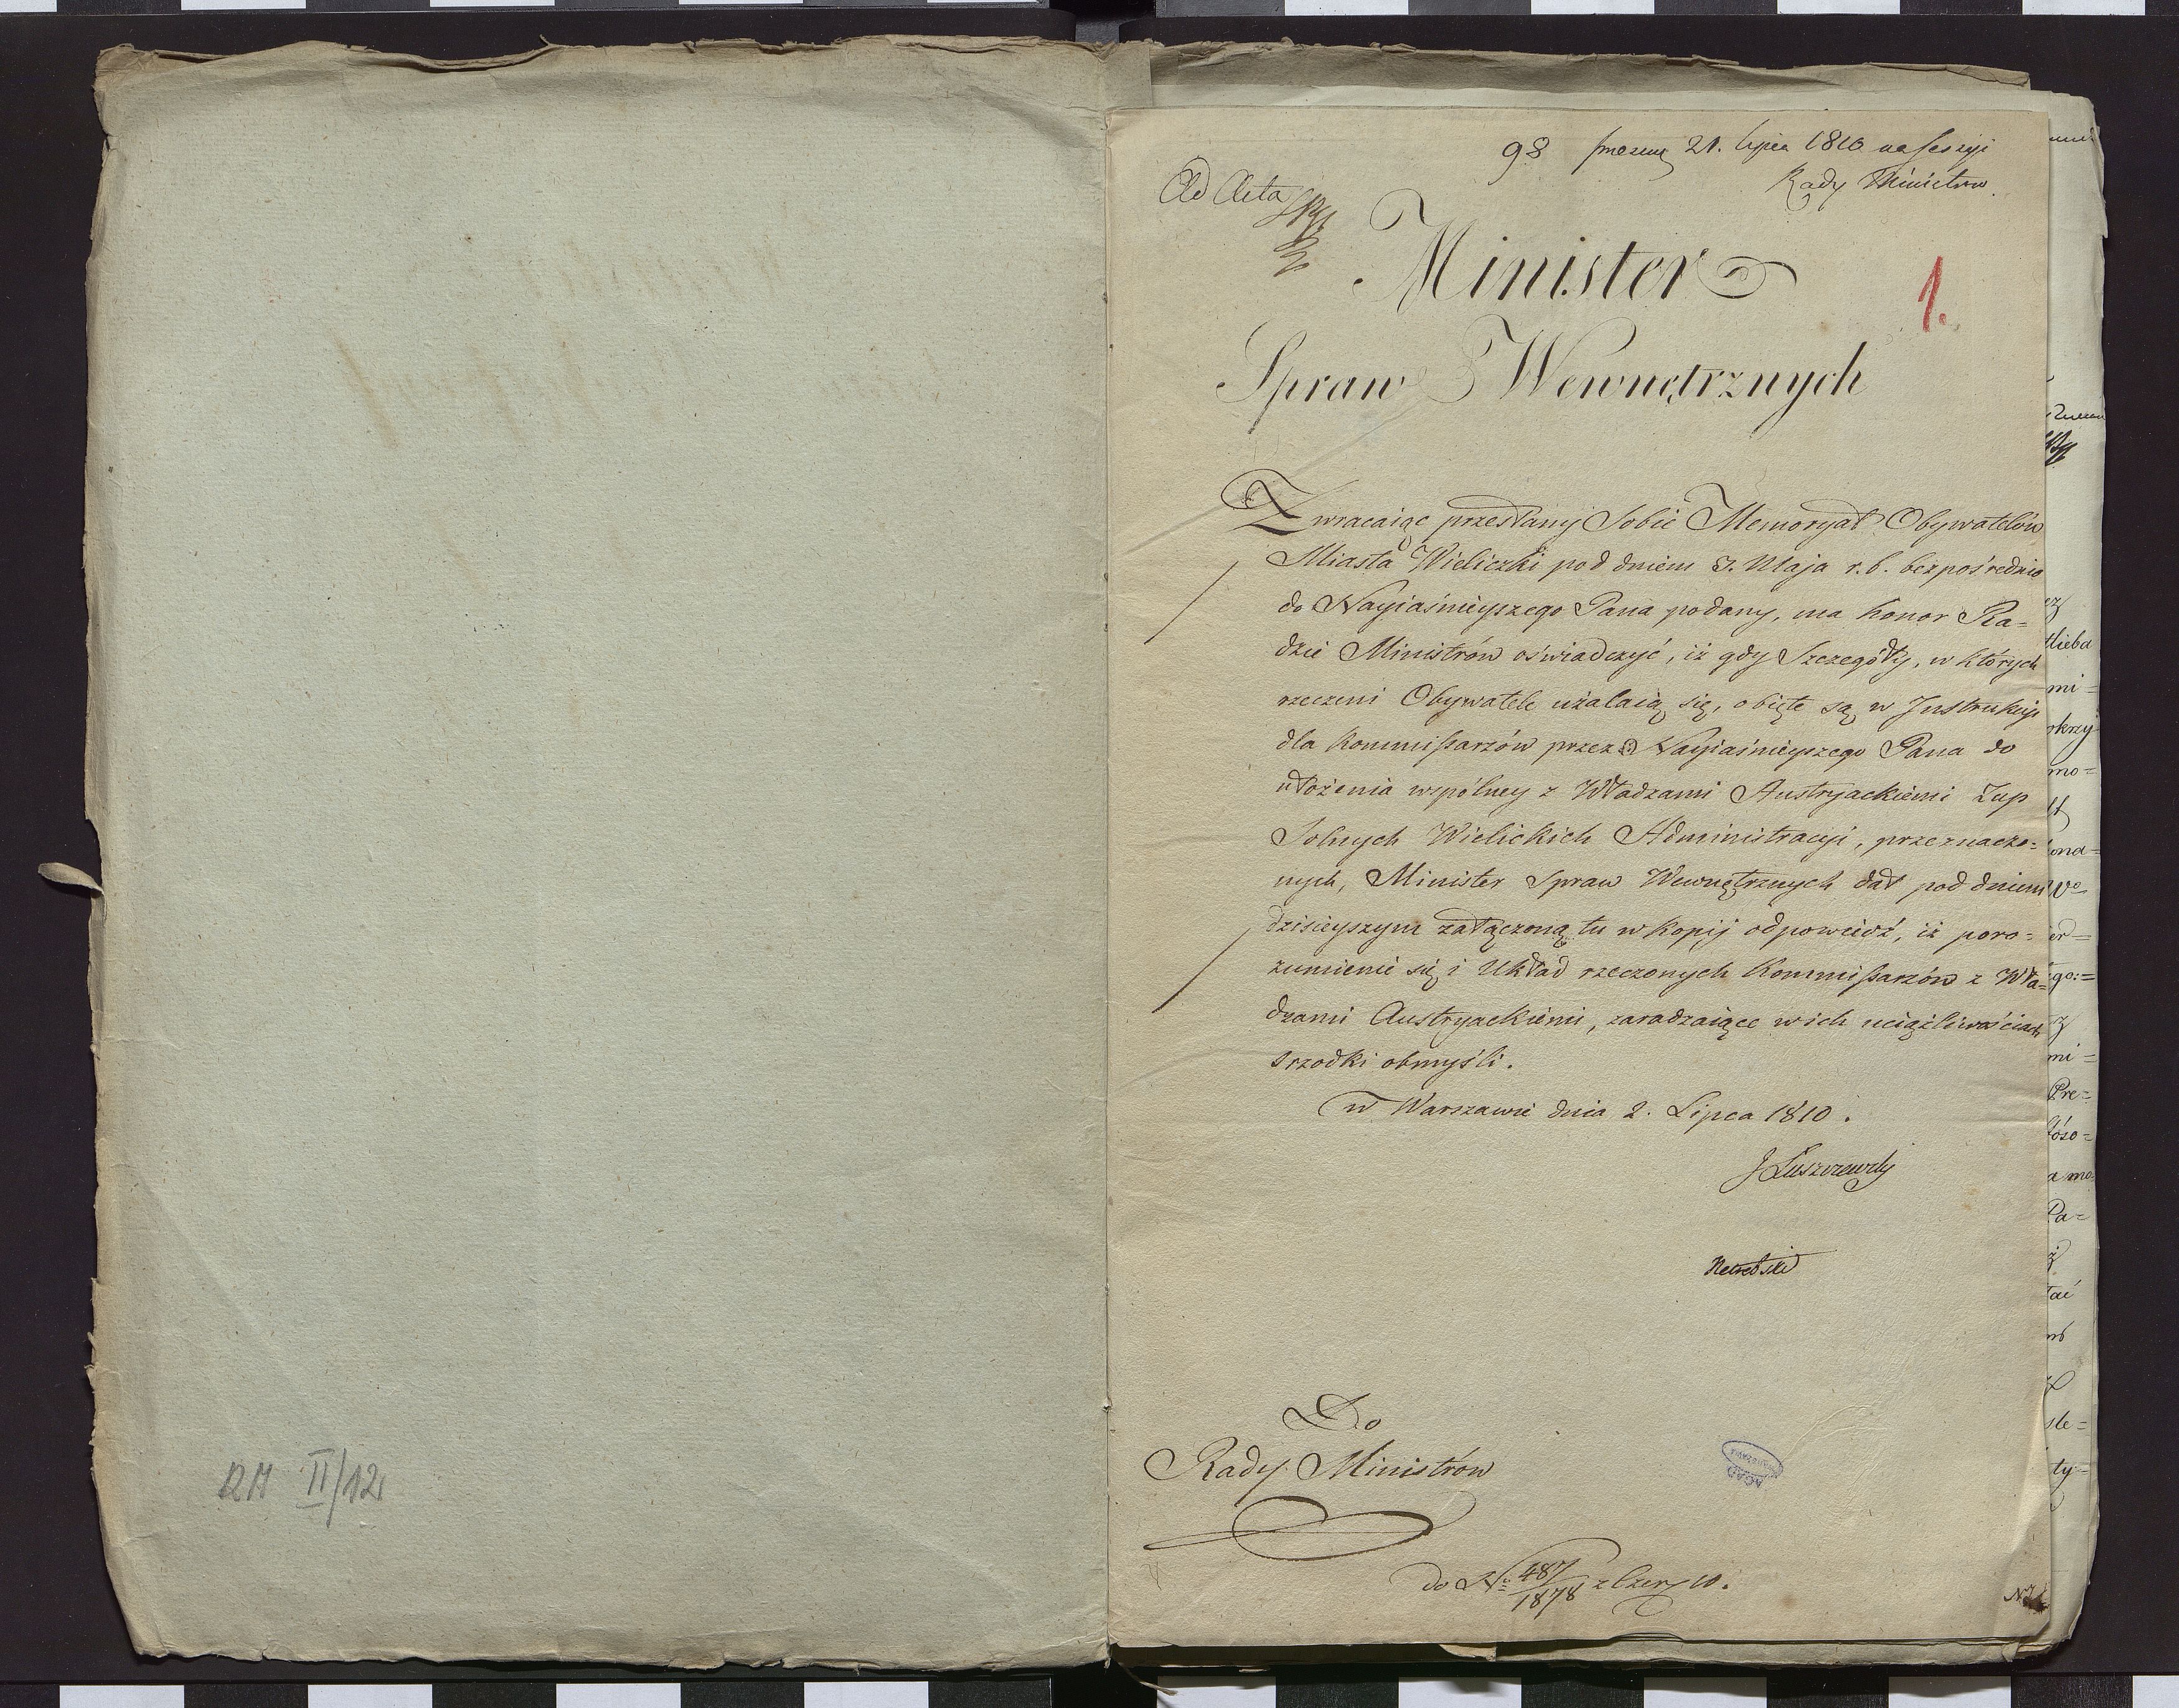 98 21. lipca 1810 na Sessyi
Rady Ministrow.
Ad Acta
Minister
1.
Spraw Wewnętrznych
Zwracaiąc przesłany Sobie Memoryał Obywatelów
Miasta Wieliczki pod dniem 3. Maja r. b. bezpośrednio
do Nayiaśnieyszego Pana podany, ma honor Ra=
dzie Ministrów oświadczyć, iż gdy Szczegóły, w których
rzeczeni Obywatele użalaią się, obięte są w Instrukcyi
dla Kommißarzów przez Nayiaśnieyszego Pana do
ułożenia wspólney z Władzami Austryackiemi Żup
Solnych Wielickich Administracyi, przeznaczo=
nych, Minister Spraw Wewnętrznych dał pod dniem
dzisieyszym załączoną tu w kopij odpowiedź, iż poro=
zumienie się i Układ rzeczonych Kommißarzów z Wła=
dzami Austryackiemi, zaradzaiące w ich uciążliwościach
srzodki obmyśli.
w Warszawie dnia 2. Lipca 1810.
J Łuszczewsky
Do
Rady Ministrów
do No 487/1878 z Czer. 10.
RM II/12
AGAD
WARSZAWA